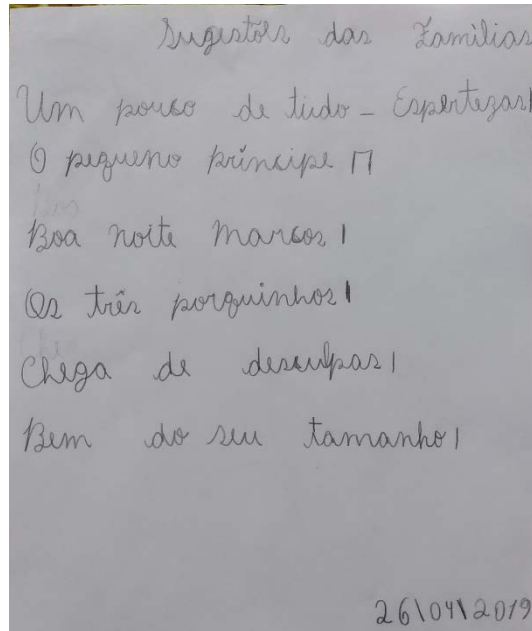 Sugestões das Famílias
Um pouco de tudo - Espertezas |
O pequeno príncipe ⊓
Boa noite Marcos |
Os três porquinhos |
Chega de desculpas |
Bem do seu tamanho |
26\04\2019